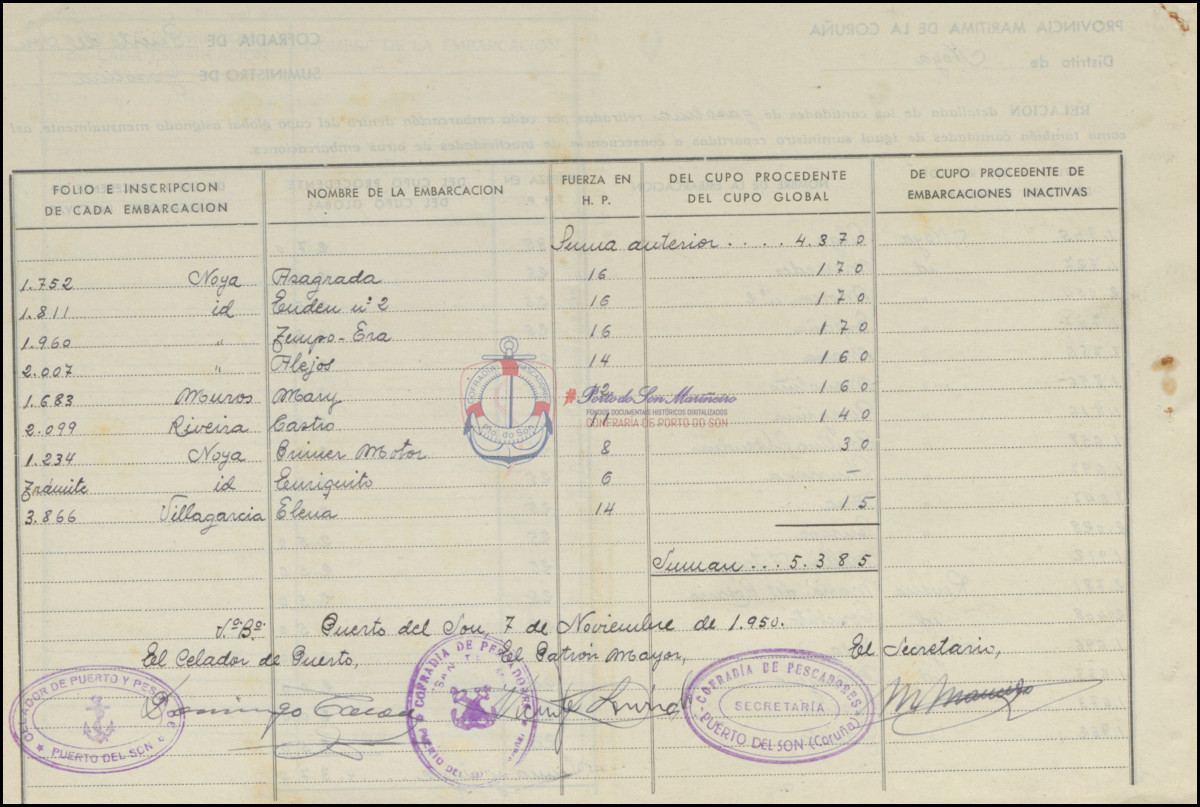 PROVINCIA MARITIMA DE LA CORUÑA
Distrito de Noya
COFRADIA DE Puerto del Son
SUMINISTRO DE gasolina
RELACION detallada de las cantidades de gasolina retiradas por cada embarcación dentro del cupo global asignado mensualmente, así
como también cantidades de igual suministro repartidas a consecuencia de inactividades de otras embarcaciones.
FOLIO E INSCRIPCION DE CADA EMBARCACION
NOMBRE DE LA EMBARCACION
FUERZA EN H. P.
DEL CUPO PROCEDENTE DEL CUPO GLOBAL
DE CUPO PROCEDENTE DE EMBARCACIONES INACTIVAS
Suma anterior .... 4.370
1.752 Noya Asagrada 16 170
1.811 id Enden nº 2 16 170
1.960 " Tempo-Era 16 170
2.007 " Alejos 14 160
1.683 Muros Mary 12 160
2.099 Riveira Castro 11 140
1.234 Noya Primer Motor 8 30
Trámite id Enriquito 6 —
3.866 Villagarcia Elena 14 15
Suman ... 5.385
COFRADÍA PESCADORES
Pto. do Son
# Porto do Son Mariñeiro
FONDOS DOCUMENTAIS HISTÓRICOS DIGITALIZADOS
CONFRARÍA DE PORTO DO SON
Vº Bº Puerto del Son, 7 de Noviembre de 1.950.
El Celador de Puerto, El Patrón Mayor, El Secretario,
CELADOR DE PUERTO Y PESCA
PUERTO DEL SON
Domingo
COFRADIA DE PESCADORES
PUERTO DEL SON
Vicente
COFRADÍA DE PESCADORES
SECRETARÍA
PUERTO DEL SON (Coruña)